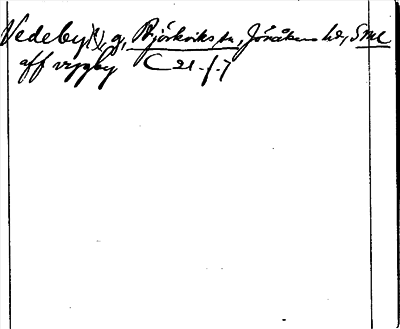 Vedeby(?), g, Björkviks sn, Jönåkers hd, Sml
aff veggby C 21 f. 7